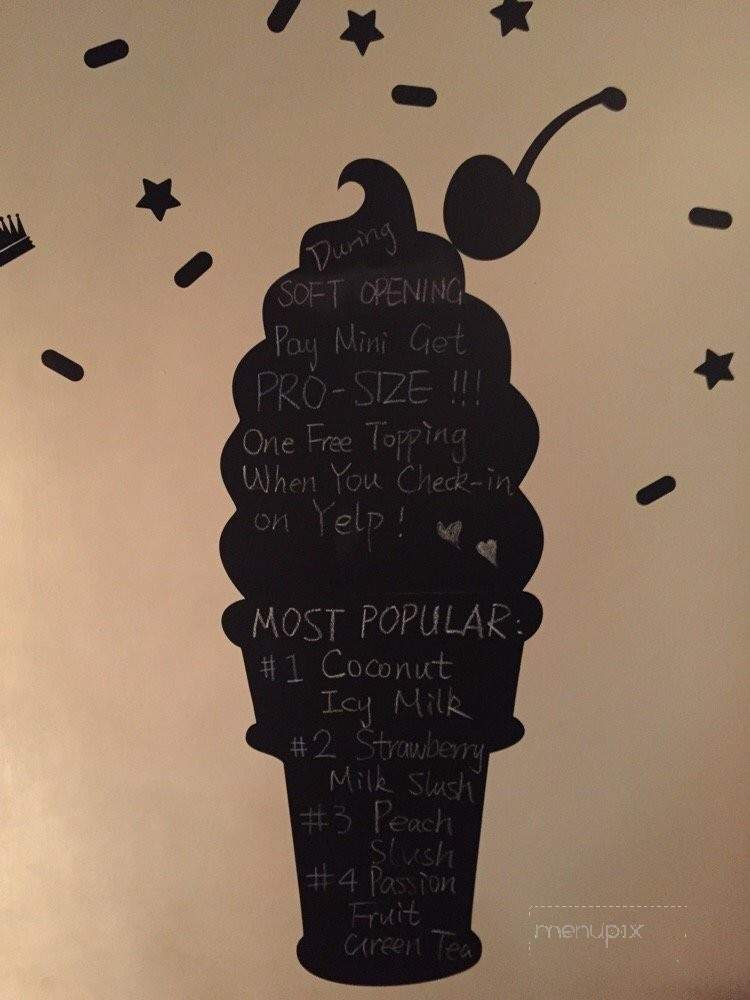 During
SOFT OPENING
Pay Mini Get
PRO-SIZE !!!
One Free Topping
When You Check-in
on Yelp!
MOST POPULAR:
#1 Coconut
Icy Milk
#2 Strawberry
Milk Slush
#3 Peach
Slush
#4 Passion
Fruit
Green Tea
menupix